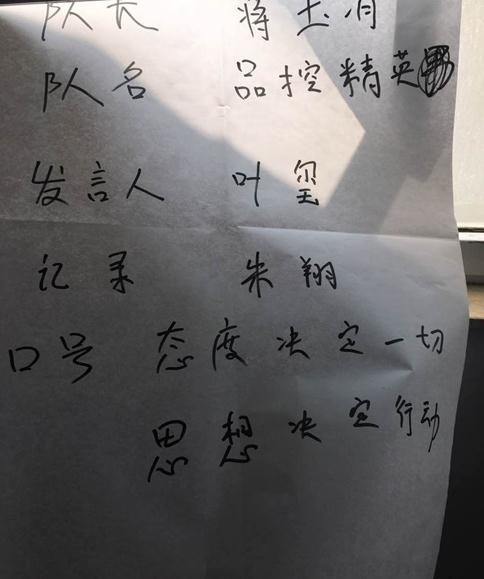 队长
队名 品控精英
发言人 叶玺
记录 朱翔
口号 态度决定一切
思想决定行动